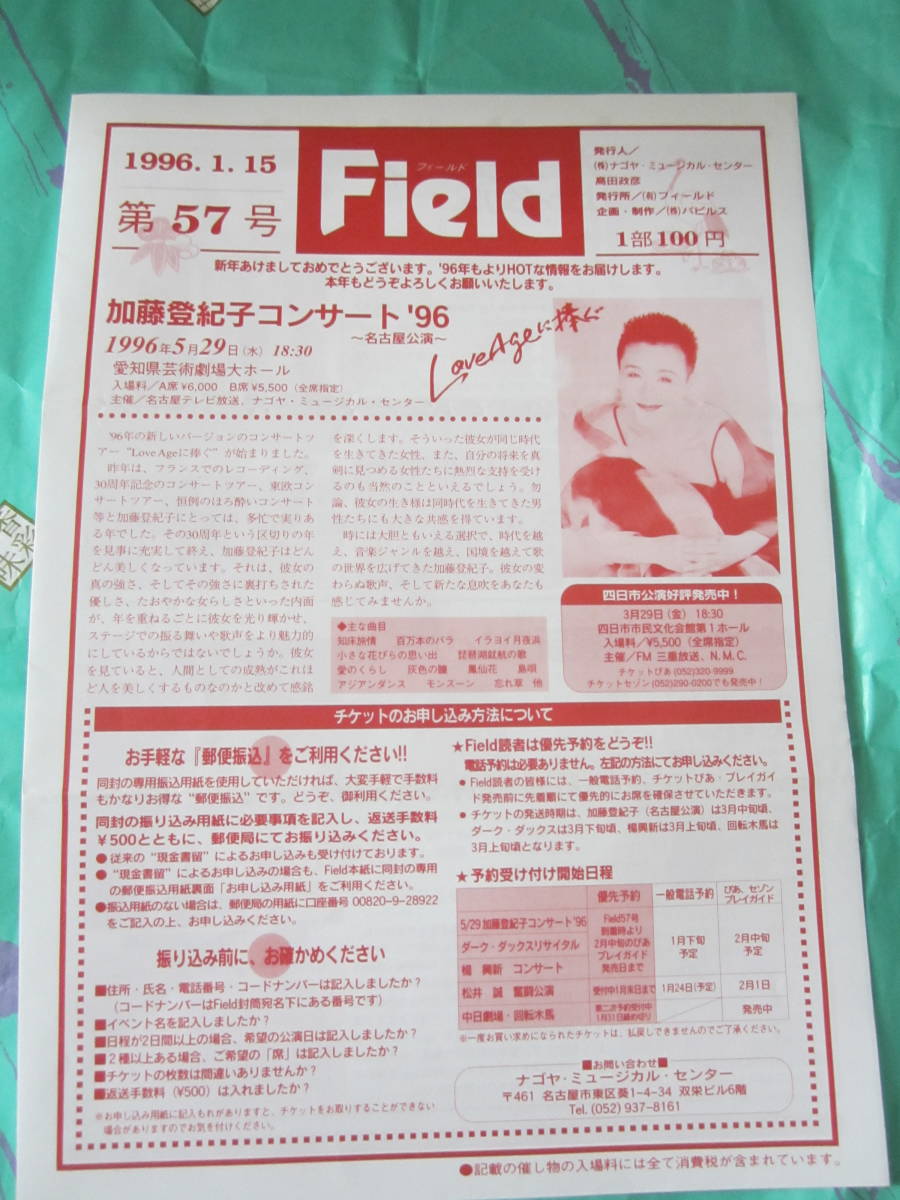 1996. 1. 15
第57号
フィールド
Field
発行人／
(株)ナゴヤ・ミュージカル・センター
高田政彦
発行所／(有)フィールド
企画・制作／(株)パピルス
1部100円
新年あけましておめでとうございます。'96年もよりHOTな情報をお届けします。
本年もどうぞよろしくお願いいたします。
加藤登紀子コンサート'96
～名古屋公演～
LoveAgeに捧ぐ
1996年5月29日(水) 18:30
愛知県芸術劇場大ホール
入場料／A席¥6,000 B席¥5,500（全席指定）
主催／名古屋テレビ放送、ナゴヤ・ミュージカル・センター
'96年の新しいバージョンのコンサートツ
アー“Love Ageに捧ぐ”が始まりました。
昨年は、フランスでのレコーディング、
30周年記念のコンサートツアー、東欧コン
サートツアー、恒例のほろ酔いコンサート
等と加藤登紀子にとっては、多忙で実りあ
る年でした。その30周年という区切りの年
を見事に充実して終え、加藤登紀子はどん
どん美しくなっています。それは、彼女の
真の強さ、そしてその強さに裏打ちされた
優しさ、たおやかな女らしさといった内面
が、年を重ねるごとに彼女を光り輝かせ、
ステージでの振る舞いや歌声をより魅力的
にしているからではないでしょうか。彼女
を見ていると、人間としての成熟がこれほ
ど人を美しくするものなのかと改めて感銘
を深くします。そういった彼女が同じ時代
を生きてきた女性、また、自分の将来を真
剣に見つめる女性たちに熱烈な支持を受け
るのも当然のことといえるでしょう。勿
論、彼女の生き様は同時代を生きてきた男
性たちにも大きな共感を得ています。
時には大胆ともいえる選択で、時代を越
え、音楽ジャンルを越え、国境を越えて歌
の世界を広げてきた加藤登紀子。彼女の変
わらぬ歌声、そして新たな息吹をあなたも
感じてみませんか。
◆主な曲目
知床旅情 百万本のバラ イラヨイ月夜浜
小さな花びらの思い出 琵琶湖就航の歌
愛のくらし 灰色の瞳 鳳仙花 島唄
アジアンダンス モンスーン 忘れ草 他
四日市公演好評発売中！
3月29日(金) 18:30
四日市市民文化会館第1ホール
入場料／¥5,500（全席指定）
主催／FM三重放送、N.M.C.
チケットぴあ(052)320-9999
チケットセゾン(052)290-0200でも発売中！
チケットのお申し込み方法について
お手軽な『郵便振込』をご利用ください!!
同封の専用振込用紙を使用していただければ、大変手軽で手数料
もかなりお得な“郵便振込”です。どうぞ、御利用ください。
同封の振り込み用紙に必要事項を記入し、返送手数料
¥500とともに、郵便局にてお振り込みください。
●従来の“現金書留”によるお申し込みも受け付けております。
●“現金書留”によるお申し込みの場合も、Field本紙に同封の専用
の郵便振込用紙裏面「お申し込み用紙」をご利用ください。
●振込用紙のない場合は、郵便局の用紙に口座番号 00820-9-28922
をご記入の上、お申し込みください。
振り込み前に、お確かめください
■住所・氏名・電話番号・コードナンバーは記入しましたか？
（コードナンバーはField封筒宛名下にある番号です）
■イベント名を記入しましたか？
■日程が2日間以上の場合、希望の公演日は記入しましたか？
■2種以上ある場合、ご希望の「席」は記入しましたか？
■チケットの枚数は間違いありませんか？
■返送手数料（¥500）は入れましたか？
※お申し込み用紙に記入もれがありますと、チケットをお取りすることができない
場合がありますのでお気を付けください。
★Field読者は優先予約をどうぞ!!
電話予約は必要ありません。左記の方法にてお申し込みください。
●Field読者の皆様には、一般電話予約、チケットぴあ・プレイガイ
ド発売前に先着順にて優先的にお席を確保させていただきます。
●チケットの発送時期は、加藤登紀子（名古屋公演）は3月中旬頃、
ダーク・ダックスは3月下旬頃、楊興新は3月上旬頃、回転木馬は
3月上旬頃となります。
★予約受け付け開始日程
優先予約 一般電話予約 ぴあ、セゾン
プレイガイド
5/29 加藤登紀子コンサート'96
ダーク・ダックスリサイタル
楊 興新 コンサート
Field57号
到着時より
2月中旬のぴあ
プレイガイド
発売日まで
1月下旬
予定
2月中旬
予定
松井 誠 奮闘公演 受付中1月末日まで 1月24日(予定) 2月1日
中日劇場・回転木馬 第二次予約受付中
1月31日締め切り
発売中
※一度お買い求めになられたチケットは、払戻しできませんのでご了承ください。
■お問い合わせ■
ナゴヤ・ミュージカル・センター
〒461 名古屋市東区葵1-4-34 双栄ビル6階
Tel. (052) 937-8161
●記載の催し物の入場料には全て消費税が含まれています。